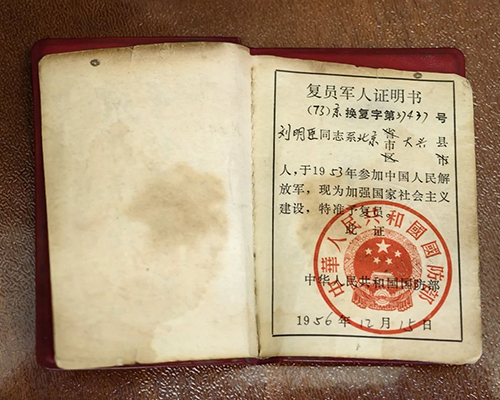 复员军人证明书
(73)京换复字第37437号
刘明臣同志系北京省市大兴县市
区
人，于1953年参加中国人民解
放军，现为加强国家社会主义
建设，特准予复员。
此证
中华人民共和国国防部
中華人民共和國國防部
1956年12月15日